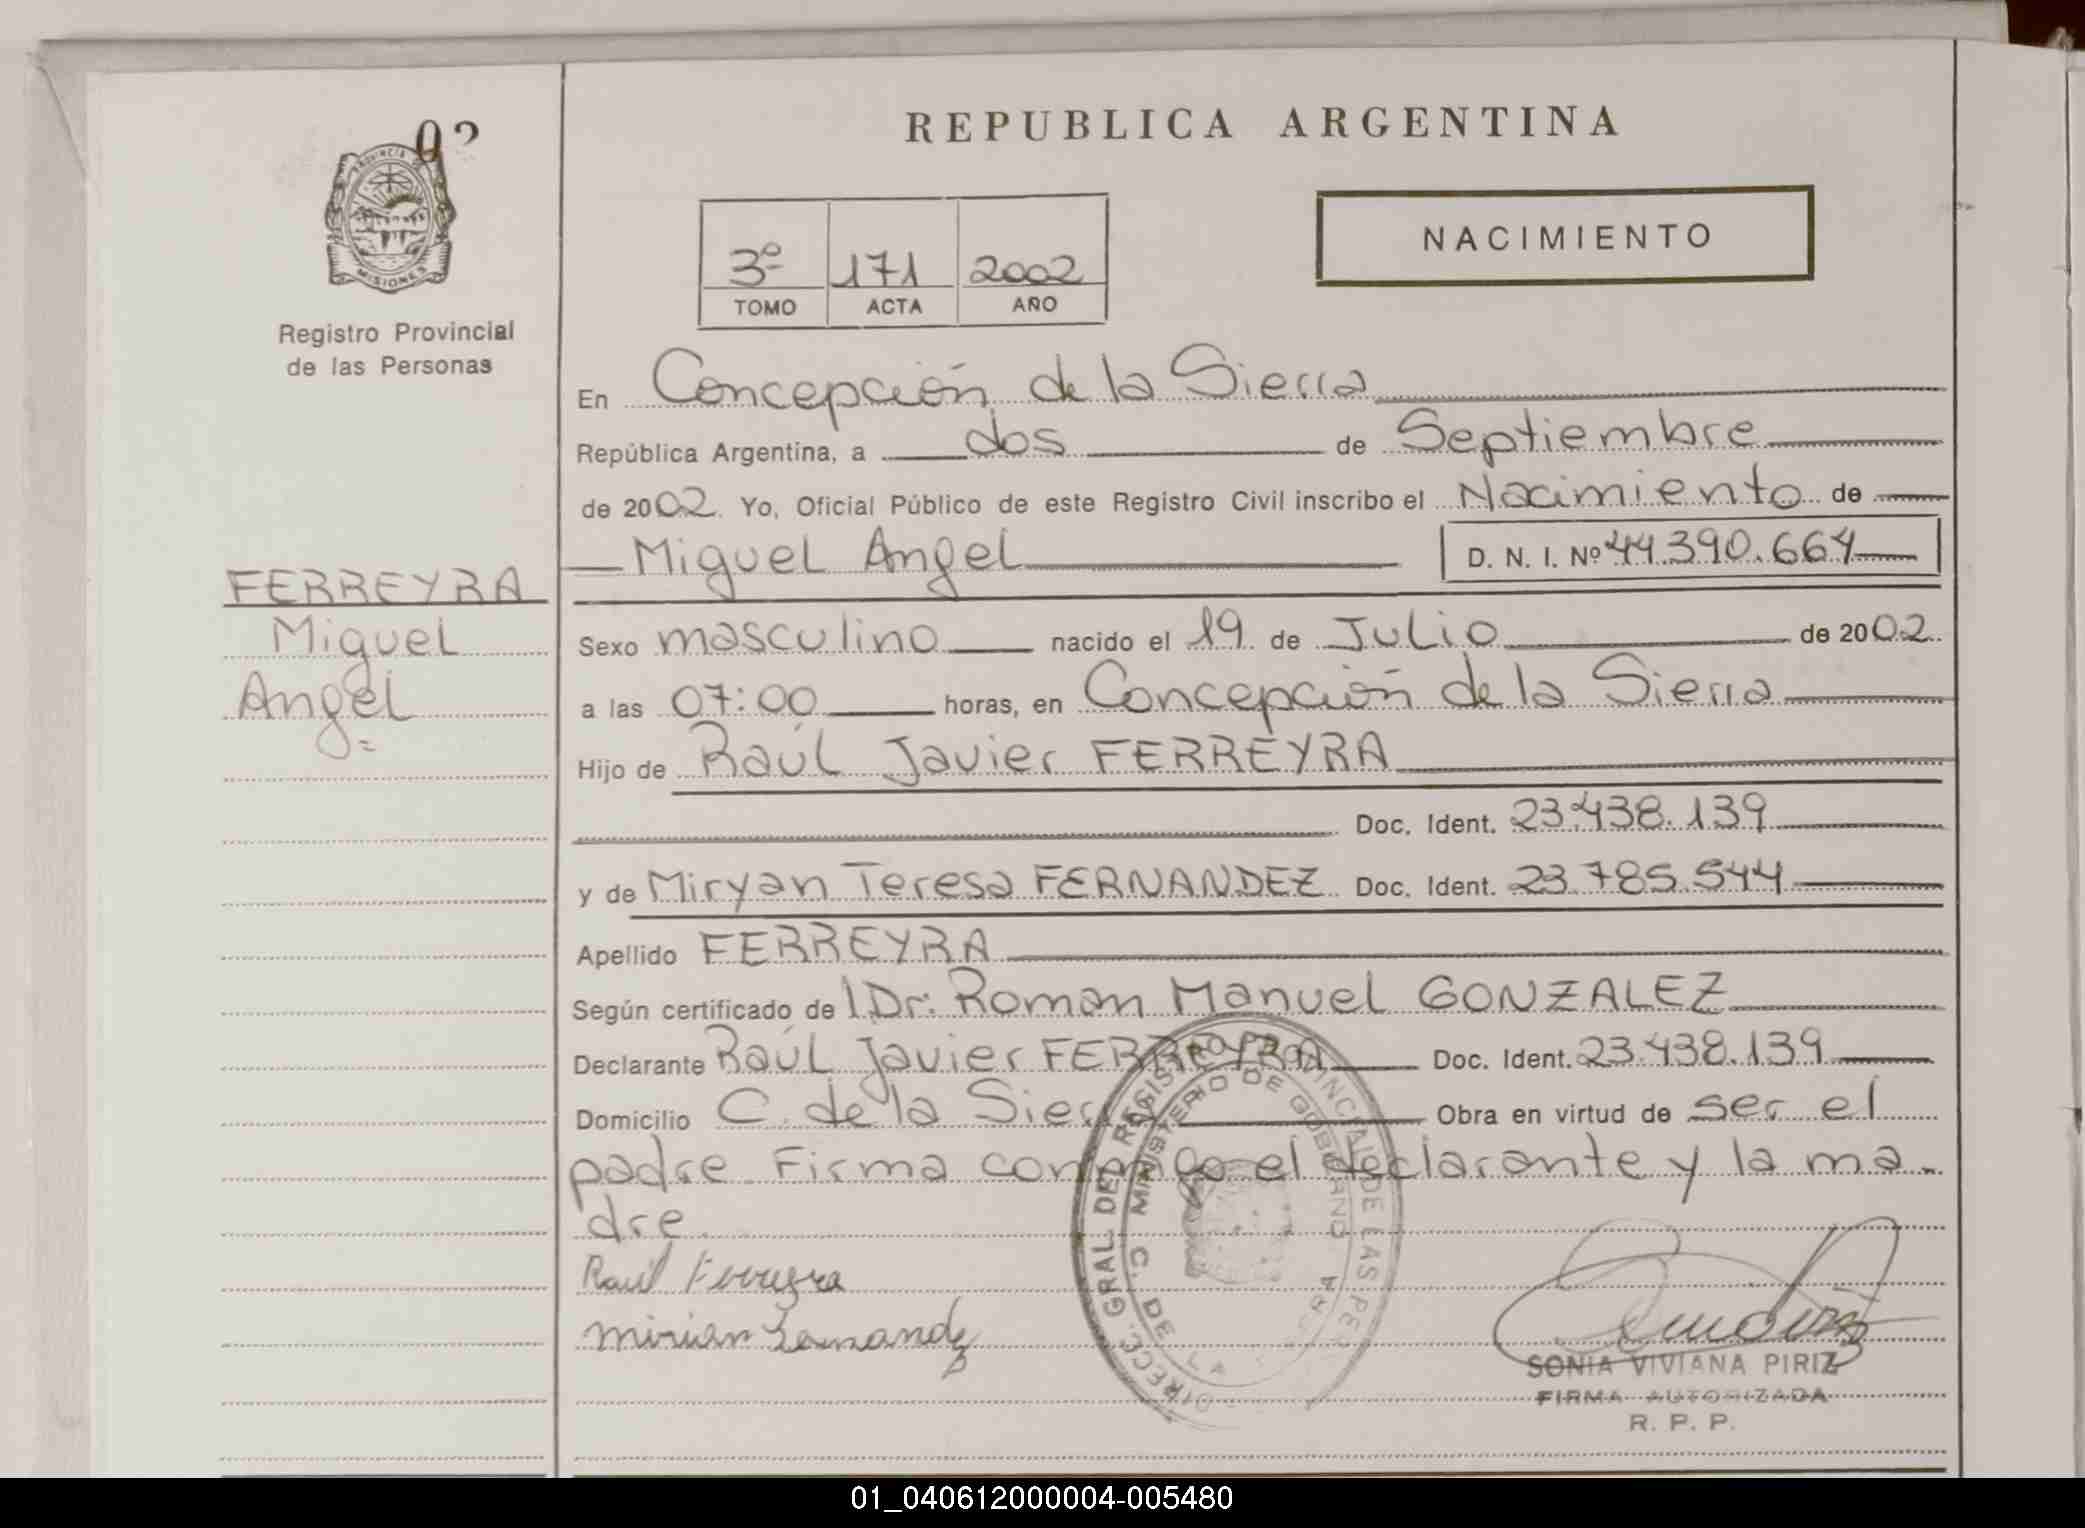 02
PROVINCIA DE
MISIONES
Registro Provincial
de las Personas
FERREYRA
Miguel
Angel
REPUBLICA ARGENTINA
3º 171 2002
TOMO ACTA AÑO
NACIMIENTO
En Concepción de la Sierra
República Argentina, a dos de Septiembre
de 2002. Yo, Oficial Público de este Registro Civil inscribo el Nacimiento de
Miguel Angel D. N. I. Nº 44.390.664
Sexo masculino nacido el 19 de Julio de 2002
a las 07:00 horas, en Concepción de la Sierra
Hijo de Raúl Javier FERREYRA
Doc. Ident. 23.438.139
y de Miryan Teresa FERNANDEZ Doc. Ident. 23.785.544
Apellido FERREYRA
Según certificado de l Dr: Roman Manuel GONZALEZ
Declarante Raúl Javier FERREYRA Doc. Ident. 23.438.139
Domicilio C. de la Sierra Obra en virtud de ser el
padre. Firma conmigo el declarante y la ma-
dre.
Raul Ferreyra
Mirian Fernandez
DIRECC. GRAL. DEL REGISTRO PROVINCIAL DE LAS PER
MINISTERIO DE GOBIERNO
C. DE LA
SONIA VIVIANA PIRIZ
FIRMA AUTORIZADA
R. P. P.
01_040612000004-005480